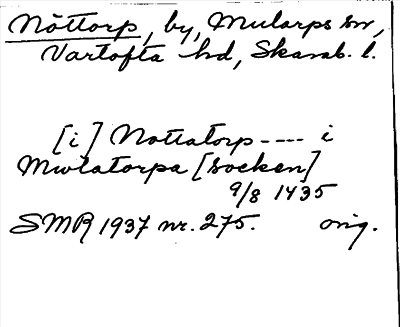 Nöttorp, by, Mularps sn,
Vartofta hd, Skarab. l.
[i] Nottatorp---- i
Mwlatorpa [socken]
9/8 1435
SMR 1937 nr. 275. orig.